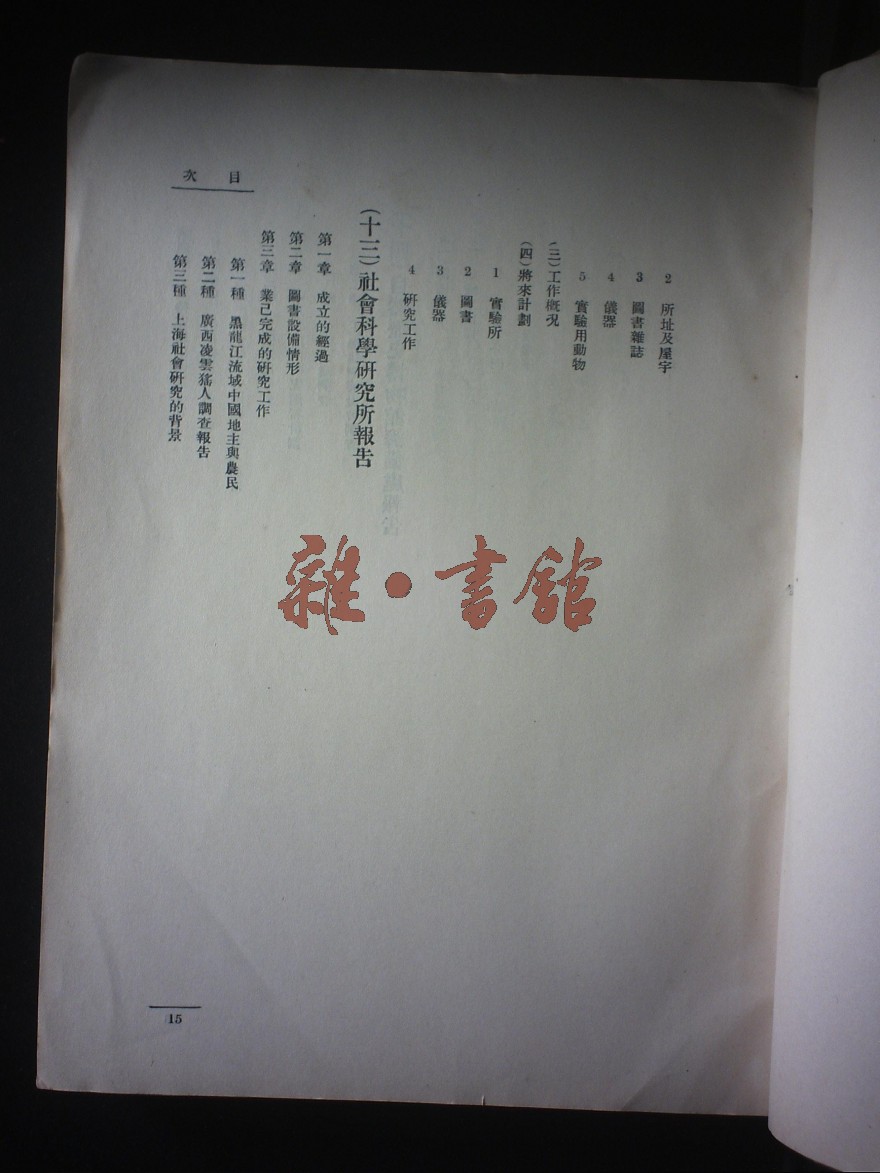 目次
2 所址及屋宇
3 圖書雜誌
4 儀器
5 實驗用動物
(三)工作概況
(四)將來計劃
1 實驗所
2 圖書
3 儀器
4 研究工作
(十三)社會科學研究所報告
第一章 成立的經過
第二章 圖書設備情形
第三章 業己完成的研究工作
第一種 黑龍江流域中國地主與農民
第二種 廣西凌雲猺人調查報告
第三種 上海社會研究的背景
15
雜·書館